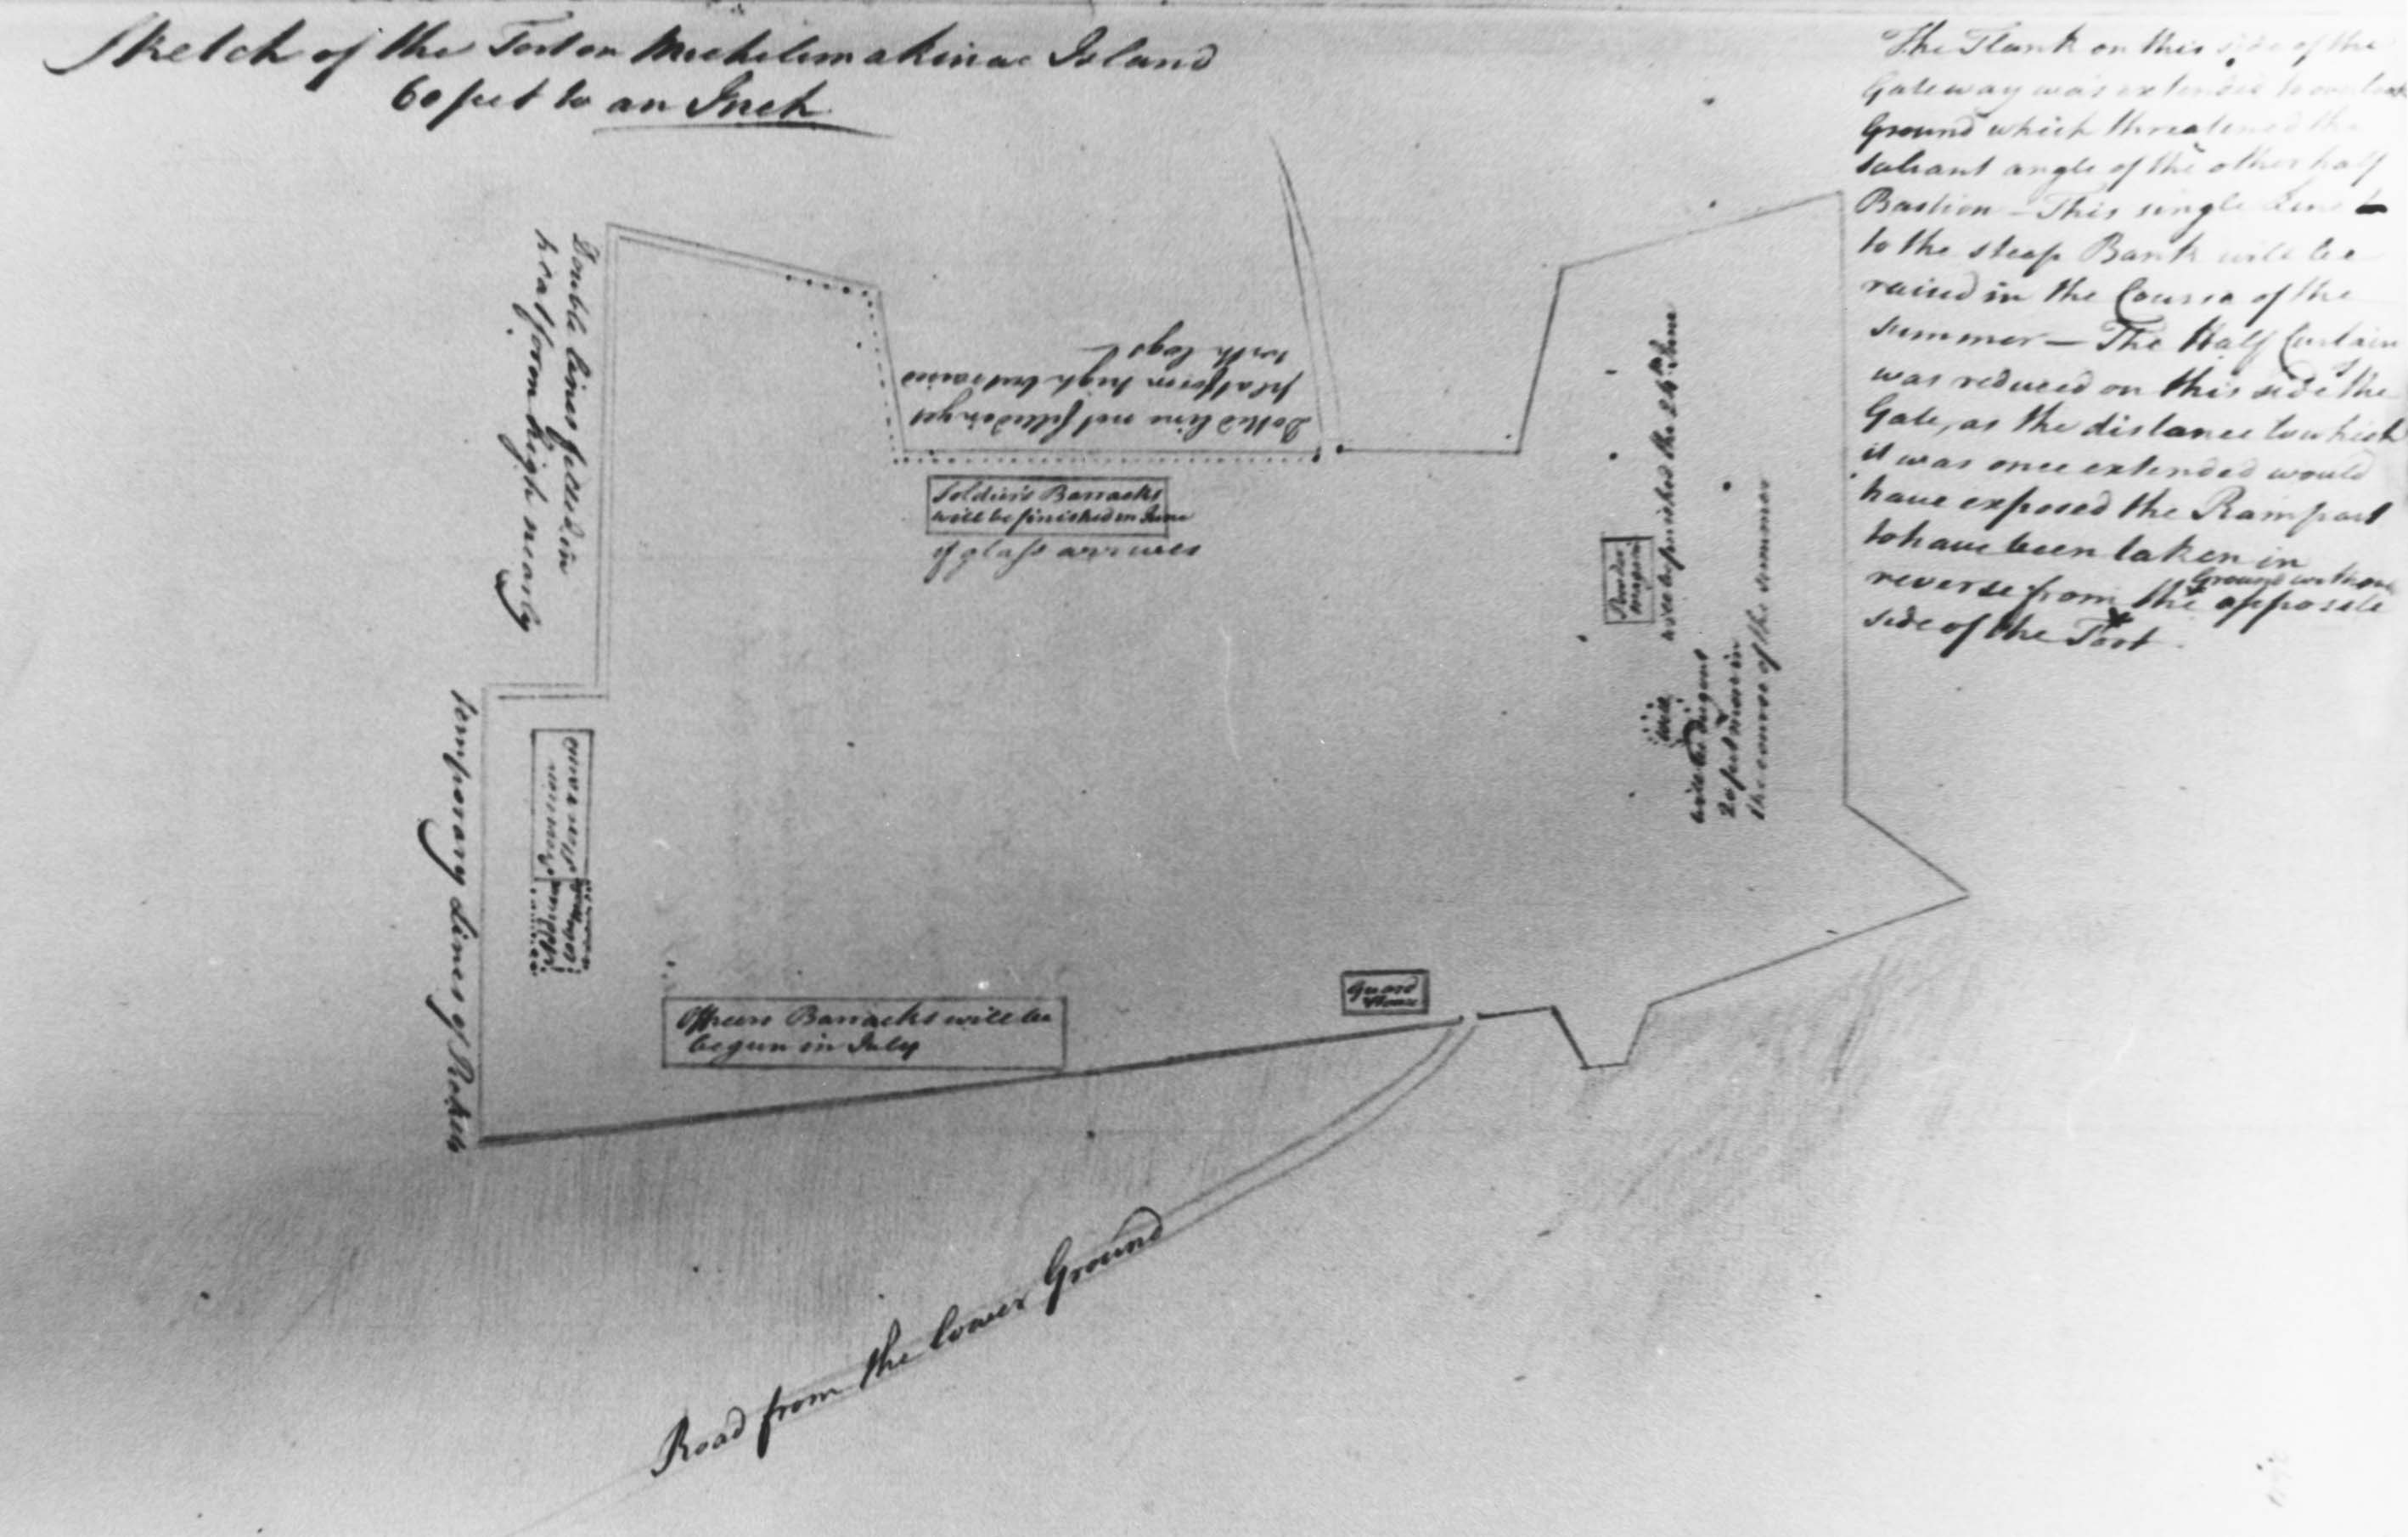 Sketch of the Fort on Michilimakinac Island
60 feet to an Inch
The Flank on this side of the
Gateway was extended to
Ground which threatened the
saliant angle of the other half
Bastion - This single line
to the steep Bank will be
raised in the Course of the
summer — The Half Curtain
was reduced on this side the
Gate, as the distance to which
it was once extended would
have exposed the Rampart
to have been taken in
reverse from the Ground without opposite
side of the Fort.
Double lines filled in
platform high nearly
Dotted line not filled in yet
platform high but raised
with logs
Soldiers Barracks
will be finished in June
if glass arrives
Powder
magazine
will be finished the 24th June
Well
will be dug out
20 feet more in
the course of the summer
temporary Lines of Pickets
Officers Barracks will be
begun in July
Guard
House
Road from the lower Ground